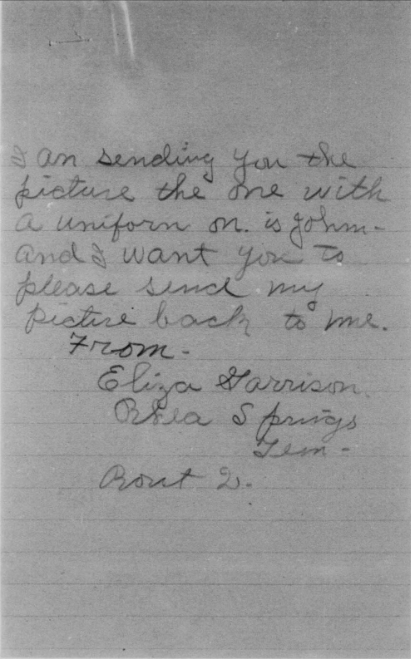 I an sending you the
picture the one with
a uniforn on. is John-
and I want you to
please send my
picture back to me.
From-
Eliza Garrison.
Rhea Springs
Tenn-
Rout 2.